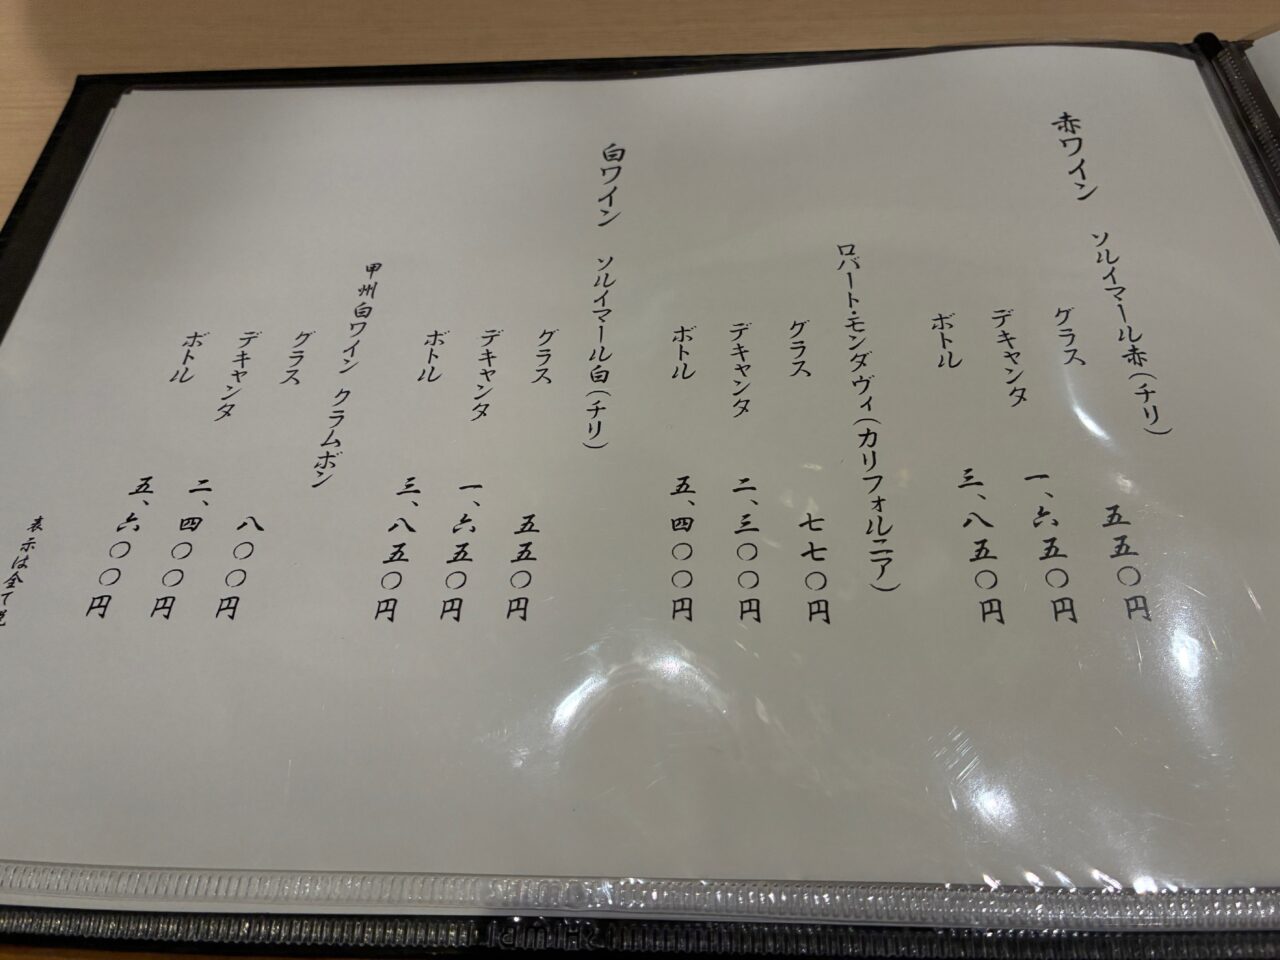 赤ワイン　ソルイマール赤（チリ）
グラス　五五〇円
デキャンタ　一、六五〇円
ボトル　三、八五〇円
ロバート・モンダヴィ（カリフォルニア）
グラス　七七〇円
デキャンタ　二、三〇〇円
ボトル　五、四〇〇円
白ワイン　ソルイマール白（チリ）
グラス　五五〇円
デキャンタ　一、六五〇円
ボトル　三、八五〇円
甲州白ワイン　クラムボン
グラス　八〇〇円
デキャンタ　二、四〇〇円
ボトル　五、六〇〇円
表示は全て